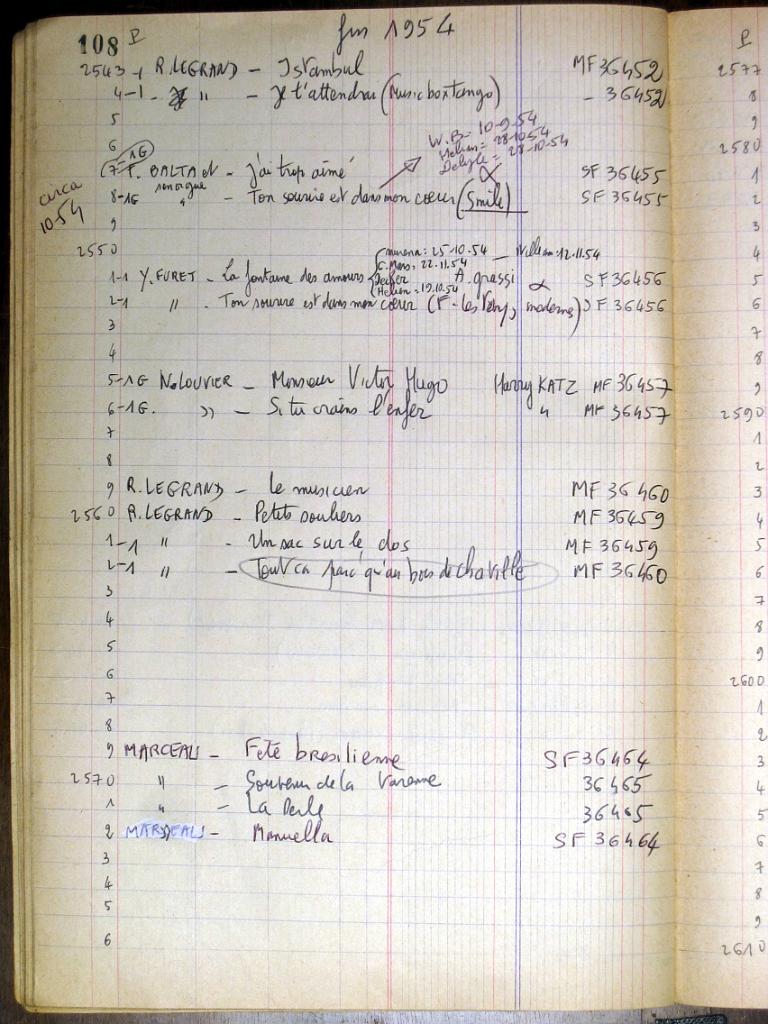 108 P fin 1954
2543-1 R. LEGRAND - Istambul MF 36452
4-1 - " - Je t'attendrai (Music box Tango) - 36452
5
W.B = 10-9-54
6 Helian = 28-10-54
Delyle = 28-10-54
7-1G F. BALTA et - j'ai trop aimé α SF 36455
circa 10-54
8-1G " - Ton sourire est dans mon cœur (Smile) SF 36455
9
2550 murena: 25-10-54 - William: 12.11.54
C. Mars: 22.11.54
1-1 Y. FURET - La fontaine des amours Decker A. grassi α SF 36456
Helian: 19.10.54
2-1 " - Ton sourire est dans mon cœur SF 36456
3
4
5-1G N. LOUVIER - Monsieur Victor Hugo Harry KATZ MF 36457
6-1G. " - Si tu crains l'enfer " MF 36457
7
8
9 R. LEGRAND - Le musicien MF 36460
2560 R. LEGRAND - Petits souliers MF 36459
1-1 " - Un sac sur le dos MF 36459
2-1 " - Tout ça parc' qu'au bois de chaville MF 36460
3
4
5
6
7
8
9 MARCEAU - Fete bresilienne SF 36464
2570 " - Souvenir de la Varenne 36465
1 " - La Perle 36465
2 MARCEAU - Manuella SF 36464
3
4
5
6
P
2577
8
9
2580
1
2
3
4
5
6
7
8
9
2590
1
2
3
4
5
6
7
8
9
2600
1
2
3
4
5
6
7
8
9
2610